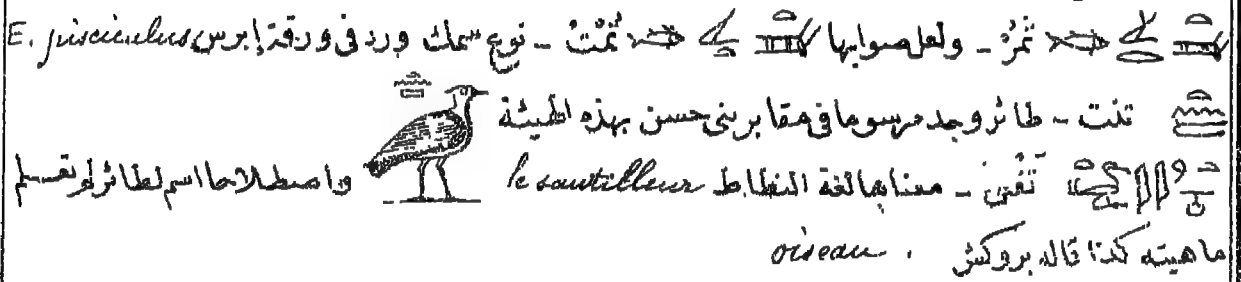 ثَمْرُ - ولعل صوابها ثَمْتُ - نوع سمك ورد فى ورقة إبرس E. pisciculus
تنت - طائر وجد مرسوما فى مقابر بنى حسن بهذه الهيئة
تَفْنَن - معناها لغة النطاط le sautilleur واصطلاحا اسم لطائر لم تعلم
ما هيته كذا قاله بروكش . oiseau